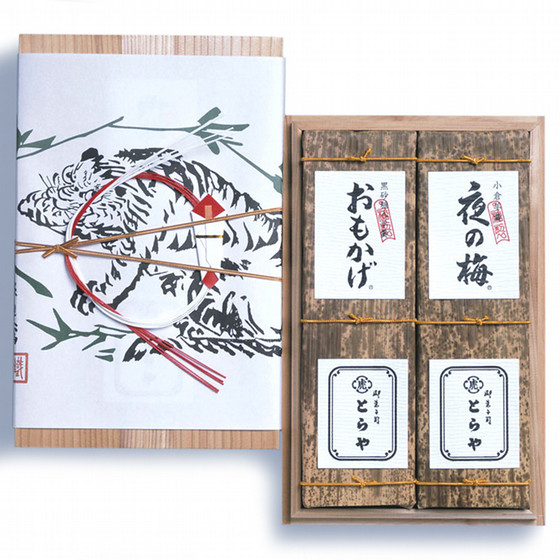 小倉羊羹
夜の梅
黒砂糖入羊羹
おもかげ
御菓子司
とらや
虎
御菓子司
とらや
虎